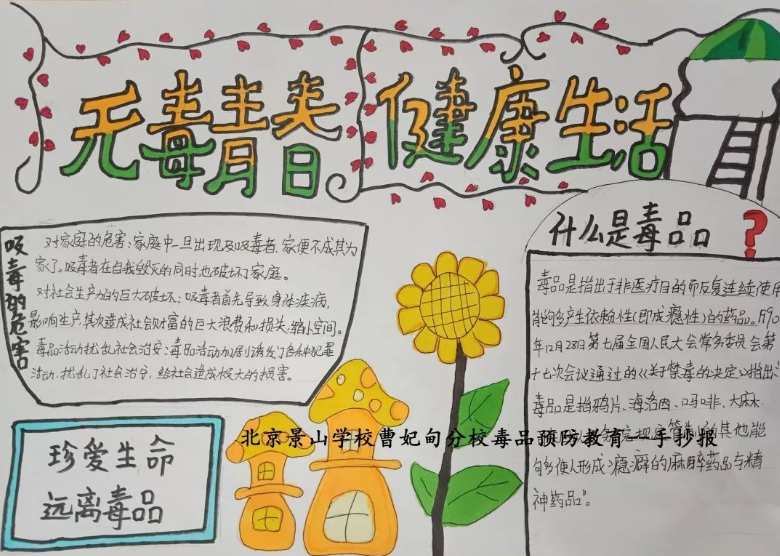 无毒青春 健康生活
吸毒的危害
对家庭的危害：家庭中一旦出现吸毒者，家便不成其为
家了。吸毒者在自我毁灭的同时，也破坏了家庭。
对社会生产力的巨大破坏：吸毒者首先导致身体疾病，
影响生产，其次造成社会财富的巨大浪费和损失，缩小空间。
毒品活动扰乱社会治安：毒品活动加剧诱发了各种犯罪
活动，扰乱了社会治安，给社会造成极大的损害。
珍爱生命
远离毒品
什么是毒品？
毒品是指出于非医疗目的而反复连续使用
能够产生依赖性（即成瘾性）的药品。
年12月28日第七届全国人民大会常务委员会第
十七次会议通过的《关于禁毒的决定》指出："
毒品是指鸦片、海洛因、吗啡、大麻、
其他能
够使人形成瘾癖的麻醉药品与精
神药品"。
北京景山学校曹妃甸分校毒品预防教育--手抄报